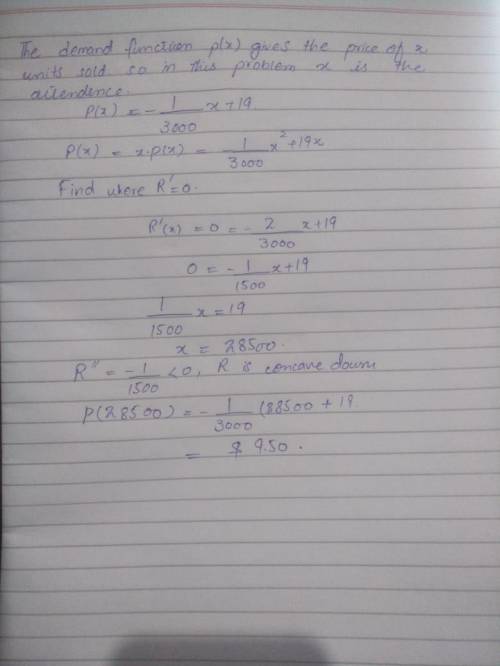 The demand function p(x) gives the price of x
units sold so in this problem x is the
attendence.
P(x) = - 1/3000 x + 19
P(x) = x.p(x) = 1/3000 x² + 19x
Find where R' = 0.
R'(x) = 0 = - 2/3000 x + 19
0 = - 1/1500 x + 19
1/1500 x = 19
x = 28500.
R'' = -1/1500 < 0, R is concave down
P(28500) = - 1/3000 (88500 + 19
= $ 9.50.